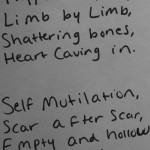 Limb by Limb,
Shattering bones,
Heart Caving in.
Self Mutilation,
Scar after Scar,
Empty and hollow